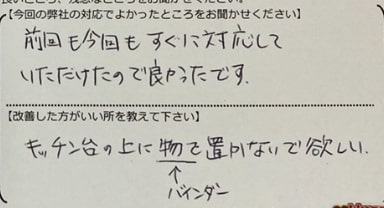 【今回の弊社の対応でよかったところをお聞かせください】
前回も今回もすぐに対応して
いただけたので良かったです.
【改善した方がいい所を教えて下さい】
キッチン台の上に物を置かないで欲しい.
↑
バインダー